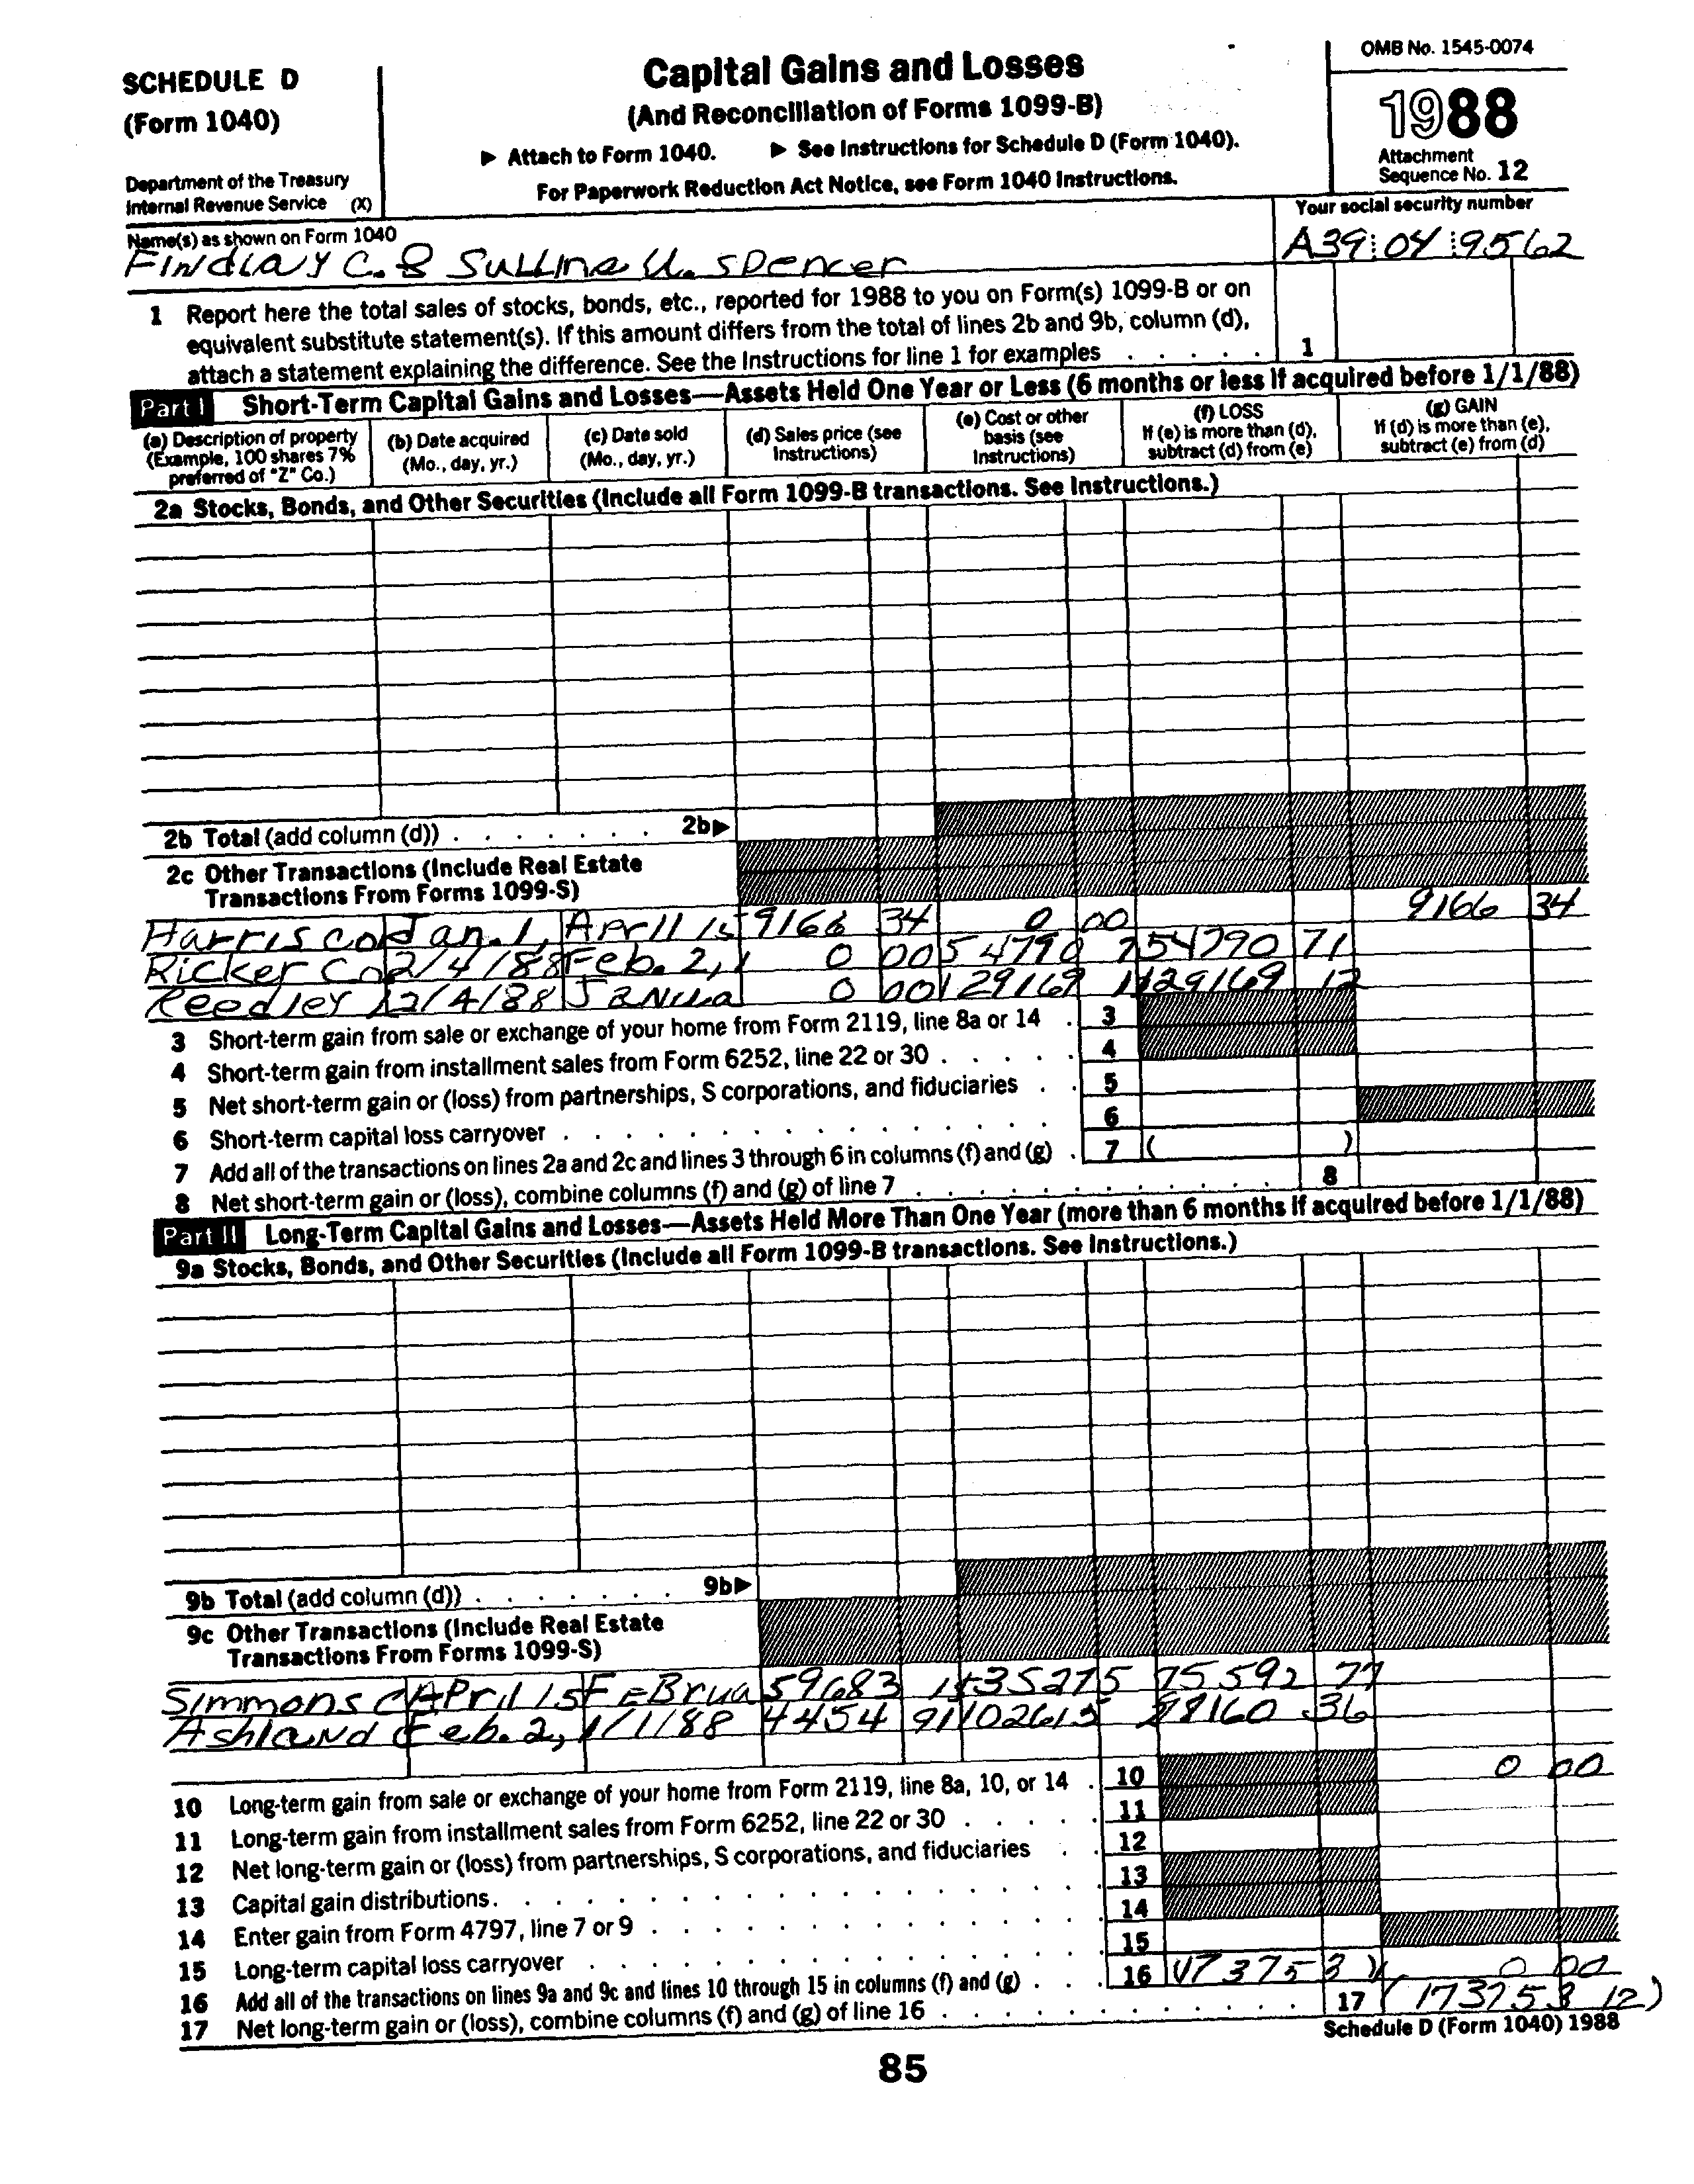 SCHEDULE D
(Form 1040)
Department of the Treasury
Internal Revenue Service (X)
Capital Gains and Losses
(And Reconciliation of Forms 1099-B)
▶ Attach to Form 1040. ▶ See Instructions for Schedule D (Form 1040).
For Paperwork Reduction Act Notice, see Form 1040 Instructions.
OMB No. 1545-0074
1988
Attachment
Sequence No. 12
Name(s) as shown on Form 1040
Your social security number
Findlay C. & Sullina U. Spencer A39 04 9562
1 Report here the total sales of stocks, bonds, etc., reported for 1988 to you on Form(s) 1099-B or on
equivalent substitute statement(s). If this amount differs from the total of lines 2b and 9b, column (d),
attach a statement explaining the difference. See the Instructions for line 1 for examples . . . . . 1
Part I Short-Term Capital Gains and Losses—Assets Held One Year or Less (6 months or less if acquired before 1/1/88)
(a) Description of property
(Example, 100 shares 7%
preferred of "Z" Co.)
(b) Date acquired
(Mo., day, yr.)
(c) Date sold
(Mo., day, yr.)
(d) Sales price (see
Instructions)
(e) Cost or other
basis (see
Instructions)
(f) LOSS
If (e) is more than (d),
subtract (d) from (e)
(g) GAIN
If (d) is more than (e),
subtract (e) from (d)
2a Stocks, Bonds, and Other Securities (Include all Form 1099-B transactions. See Instructions.)
2b Total (add column (d)) . . . . . . . 2b▶
2c Other Transactions (Include Real Estate
Transactions From Forms 1099-S)
Harris Co Jan. 1, April 15 9166 34 0 00 9166 34
Ricker Co 2/4/88 Feb. 2, 0 00 54790 7 54790 71
Reedley 12/4/88 Janua 0 00 129169 1 129169 12
3 Short-term gain from sale or exchange of your home from Form 2119, line 8a or 14 . 3
4 Short-term gain from installment sales from Form 6252, line 22 or 30 . . . . . 4
5 Net short-term gain or (loss) from partnerships, S corporations, and fiduciaries . . 5
6 Short-term capital loss carryover . . . . . . . . . . . . . . . 6
7 Add all of the transactions on lines 2a and 2c and lines 3 through 6 in columns (f) and (g) . 7 ( )
8 Net short-term gain or (loss), combine columns (f) and (g) of line 7 . . . . . . . . . . . . 8
Part II Long-Term Capital Gains and Losses—Assets Held More Than One Year (more than 6 months if acquired before 1/1/88)
9a Stocks, Bonds, and Other Securities (Include all Form 1099-B transactions. See Instructions.)
9b Total (add column (d)) . . . . . . . 9b▶
9c Other Transactions (Include Real Estate
Transactions From Forms 1099-S)
Simmons C April 15 Februa 59683 1 135275 75592 77
Ashland C Feb. 2, 1/1/88 4454 91 102615 98160 36
10 Long-term gain from sale or exchange of your home from Form 2119, line 8a, 10, or 14 . 10 0 00
11 Long-term gain from installment sales from Form 6252, line 22 or 30 . . . . . 11
12 Net long-term gain or (loss) from partnerships, S corporations, and fiduciaries . . 12
13 Capital gain distributions. . . . . . . . . . . . . . . . . 13
14 Enter gain from Form 4797, line 7 or 9 . . . . . . . . . . . . 14
15 Long-term capital loss carryover . . . . . . . . . . . . . . 15
16 Add all of the transactions on lines 9a and 9c and lines 10 through 15 in columns (f) and (g) . . . 16 (173753 ) 0 00
17 Net long-term gain or (loss), combine columns (f) and (g) of line 16 . . . . . . . . . . . . 17 (173753 12)
Schedule D (Form 1040) 1988
85